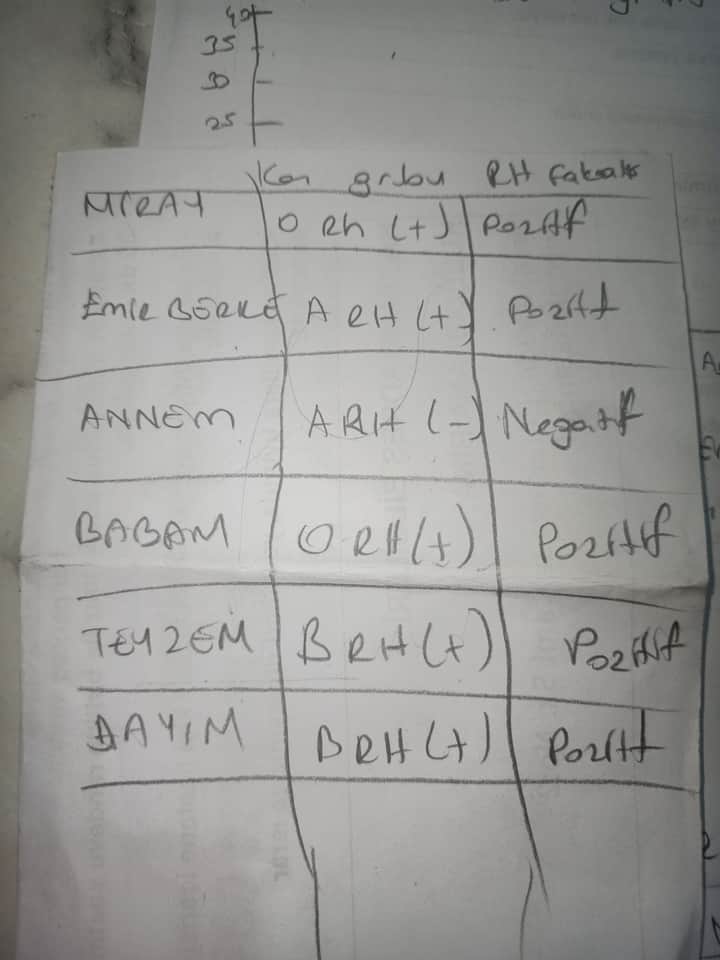 40
35
30
25
Kan grbu RH Faktörü
MİRAY O Rh (+) Pozitif
EmiR BERKE A RH (+) Pozitif
ANNEM A RH (-) Negatif
BABAM O RH (+) Pozitif
TEYZEM B RH (+) Pozitif
DAYIM B RH (+) Pozitif